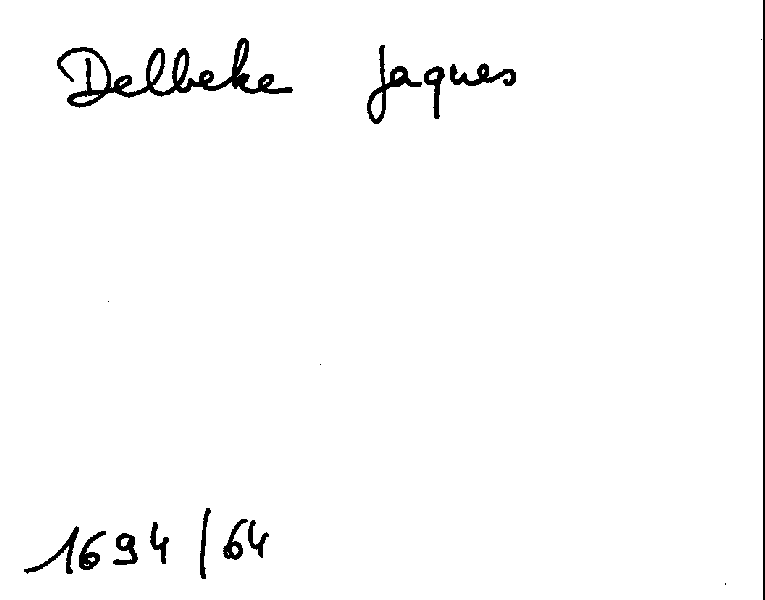 Delbeke Jaques
1694/64